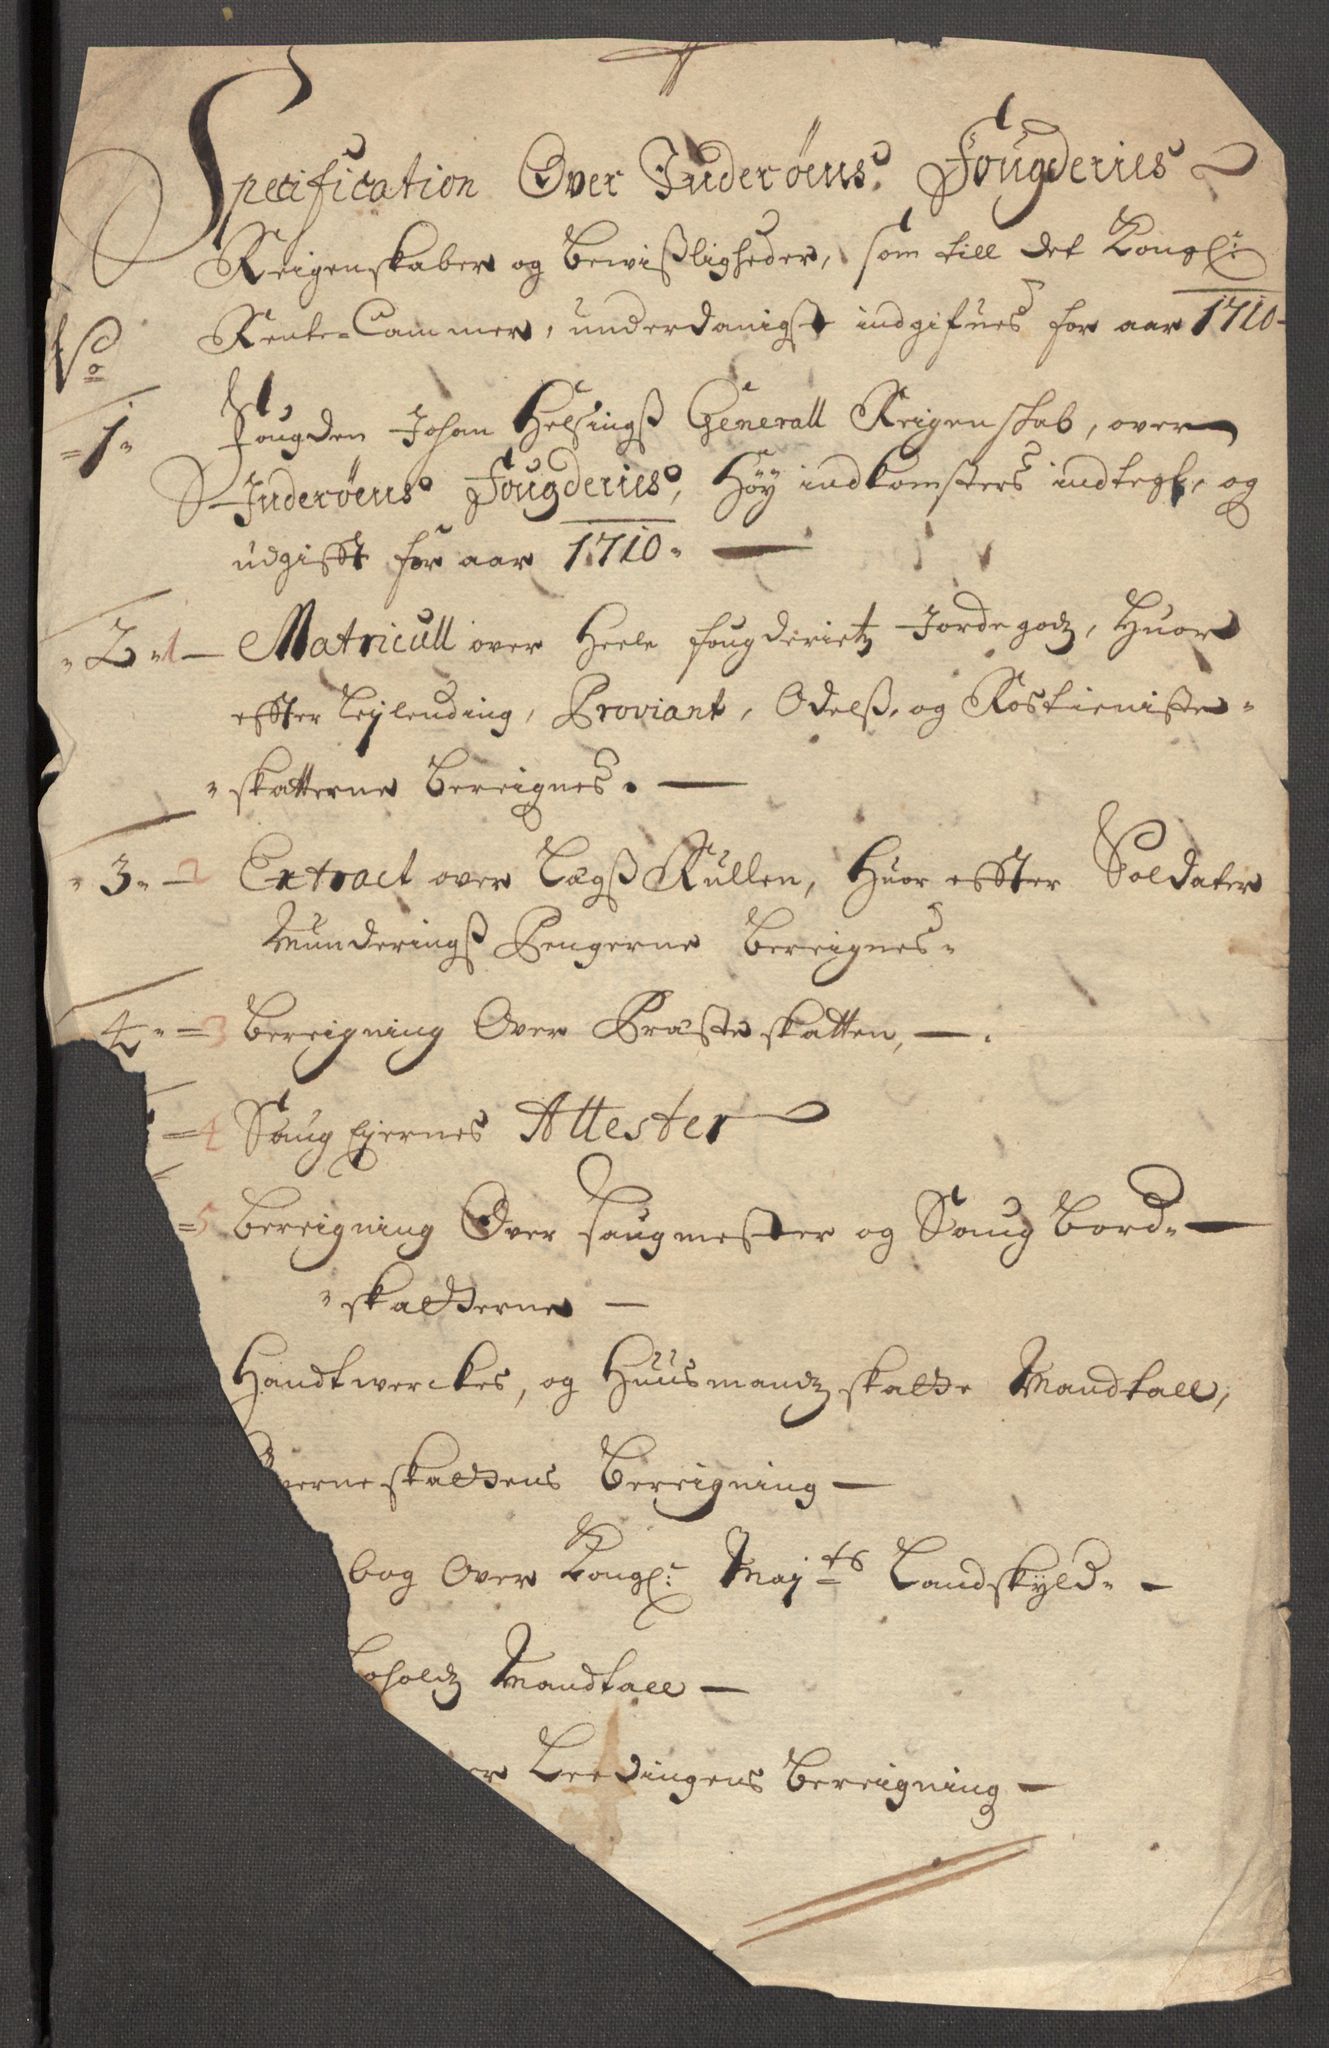 Specification Over Inderöens Fougderies
Reigenskaber og bewißligheder, som till det Kongl:
Rente-Cammer, underdanigst indgifues for aar 1710-
No
=1= Fougden Johan Helsingß Generall Reigenskab, over
Inderöens Fougderies, Höy indkomsters indtegt, og
udgifft for aar 1710. —
" 2 "1 — Matricull over Heele fougderietz Jordegodz, Huor
effter Leylending, Proviant, Odelß, og Rostieniste=
"skatterne bereignes. —
" 3 " — 2 Extract over Lægß Rullen, Huor effter Soldater
Munderingß Pengerne bereignes=
4 " = 3 bereigning Over Præsteskatten, — .
= 4 Saug Eyernes Attester
= 5 bereigning Over saugmester og Saug bord= —
"skatterne —
Handtwerckes, og Huusmandz skatte Mandtall,
verneskattens bereigning —
bog Over Kongl: Maj:ts Landskyld= —
holdz Mandtall —
er Leedingens bereigning —